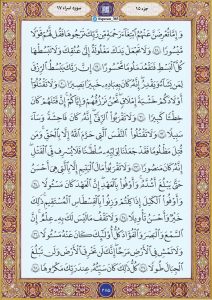 جزء ۱۵
سوره اسراء ۱۷
وَإِمَّا تُعْرِضَنَّ عَنْهُمُ ابْتِغَاءَ رَحْمَةٍ مِنْ رَبِّكَ تَرْجُوهَا فَقُلْ لَهُمْ قَوْلًا
مَيْسُورًا ﴿۲۸﴾ وَلَا تَجْعَلْ يَدَكَ مَغْلُولَةً إِلَىٰ عُنُقِكَ وَلَا تَبْسُطْهَا
كُلَّ الْبَسْطِ فَتَقْعُدَ مَلُومًا مَحْسُورًا ﴿۲۹﴾ إِنَّ رَبَّكَ يَبْسُطُ الرِّزْقَ
لِمَنْ يَشَاءُ وَيَقْدِرُ إِنَّهُ كَانَ بِعِبَادِهِ خَبِيرًا بَصِيرًا ﴿۳۰﴾ وَلَا تَقْتُلُوا
أَوْلَادَكُمْ خَشْيَةَ إِمْلَاقٍ نَحْنُ نَرْزُقُهُمْ وَإِيَّاكُمْ إِنَّ قَتْلَهُمْ كَانَ
خِطْئًا كَبِيرًا ﴿۳۱﴾ وَلَا تَقْرَبُوا الزِّنَىٰ إِنَّهُ كَانَ فَاحِشَةً وَسَاءَ
سَبِيلًا ﴿۳۲﴾ وَلَا تَقْتُلُوا النَّفْسَ الَّتِي حَرَّمَ اللَّهُ إِلَّا بِالْحَقِّ وَمَنْ
قُتِلَ مَظْلُومًا فَقَدْ جَعَلْنَا لِوَلِيِّهِ سُلْطَانًا فَلَا يُسْرِفْ فِي الْقَتْلِ
إِنَّهُ كَانَ مَنْصُورًا ﴿۳۳﴾ وَلَا تَقْرَبُوا مَالَ الْيَتِيمِ إِلَّا بِالَّتِي هِيَ أَحْسَنُ
حَتَّىٰ يَبْلُغَ أَشُدَّهُ وَأَوْفُوا بِالْعَهْدِ إِنَّ الْعَهْدَ كَانَ مَسْئُولًا ﴿۳۴﴾
وَأَوْفُوا الْكَيْلَ إِذَا كِلْتُمْ وَزِنُوا بِالْقِسْطَاسِ الْمُسْتَقِيمِ ذَٰلِكَ
خَيْرٌ وَأَحْسَنُ تَأْوِيلًا ﴿۳۵﴾ وَلَا تَقْفُ مَا لَيْسَ لَكَ بِهِ عِلْمٌ إِنَّ
السَّمْعَ وَالْبَصَرَ وَالْفُؤَادَ كُلُّ أُولَٰئِكَ كَانَ عَنْهُ مَسْئُولًا ﴿۳۶﴾
وَلَا تَمْشِ فِي الْأَرْضِ مَرَحًا إِنَّكَ لَنْ تَخْرِقَ الْأَرْضَ وَلَنْ تَبْلُغَ
الْجِبَالَ طُولًا ﴿۳۷﴾ كُلُّ ذَٰلِكَ كَانَ سَيِّئُهُ عِنْدَ رَبِّكَ مَكْرُوهًا ﴿۳۸﴾
۲۸۵